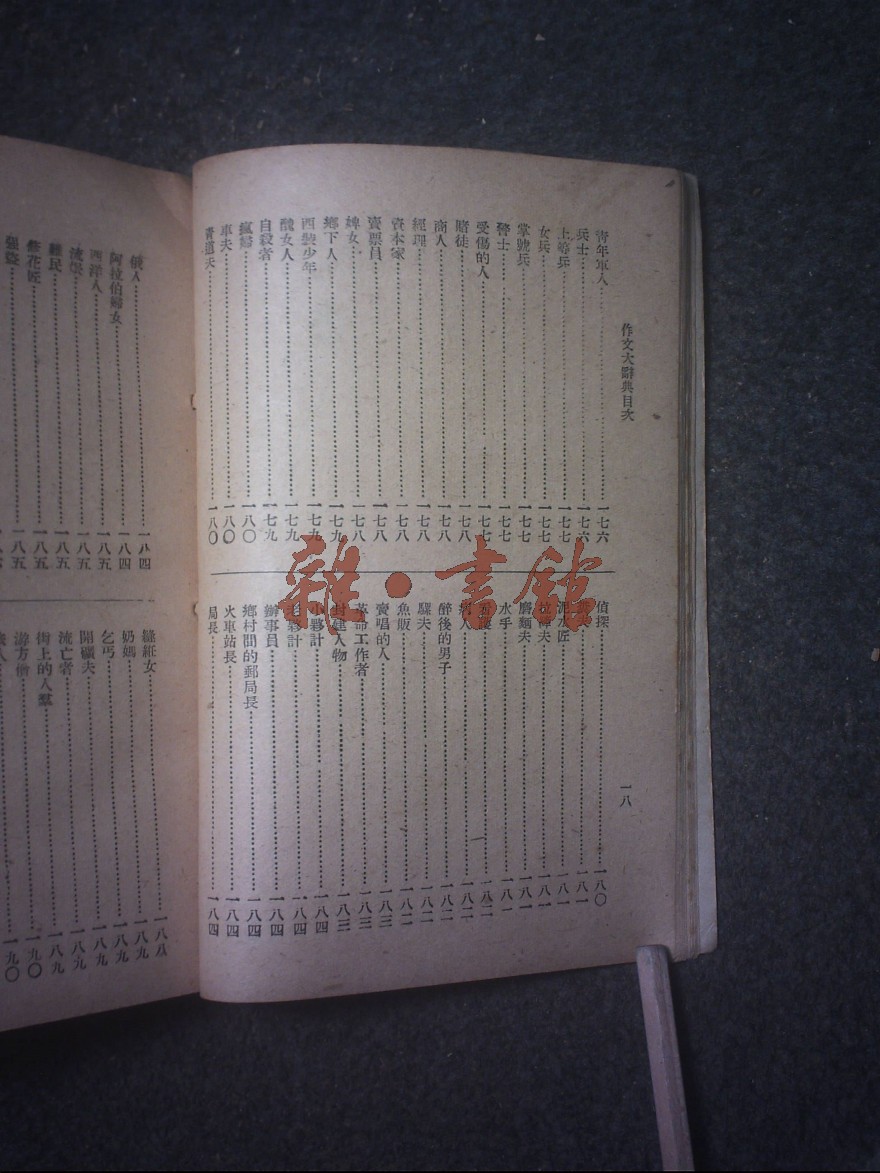 作文大辭典目次
一八
青年軍人……一七六
兵士……一七六
上等兵……一七七
女兵……一七七
掌號兵……一七七
警士……一七七
受傷的人……一七七
賭徒……一七八
商人……一七八
經理……一七八
資本家……一七八
賣票員……一七八
婢女……一七八
鄉下人……一七九
西裝少年……一七九
醜女人……一七九
自殺者……一七九
瘋婦……一八〇
車夫……一八〇
清道夫……一八〇
偵探……一八〇
一八一
泥水匠……一八一
一八一
磨麵夫……一八一
水手……一八一
一八二
病人……一八二
醉後的男子……一八二
騾夫……一八二
魚販……一八二
賣唱的人……一八三
革命工作者……一八三
封建人物……一八三
小夥計……一八四
老夥計……一八四
辦事員……一八四
鄉村間的郵局長……一八四
火車站長……一八四
局長……一八四
俄人……一八四
阿拉伯婦女……一八四
西洋人……一八五
流氓……一八五
難民……一八五
養花匠……一八五
强盜……一八五
縫紝女……一八八
奶媽……一八九
乞丐……一八九
開礦夫……一八九
流亡者……一八九
街上的人羣……一八九
游方僧……一九〇
一九〇
雜·書館